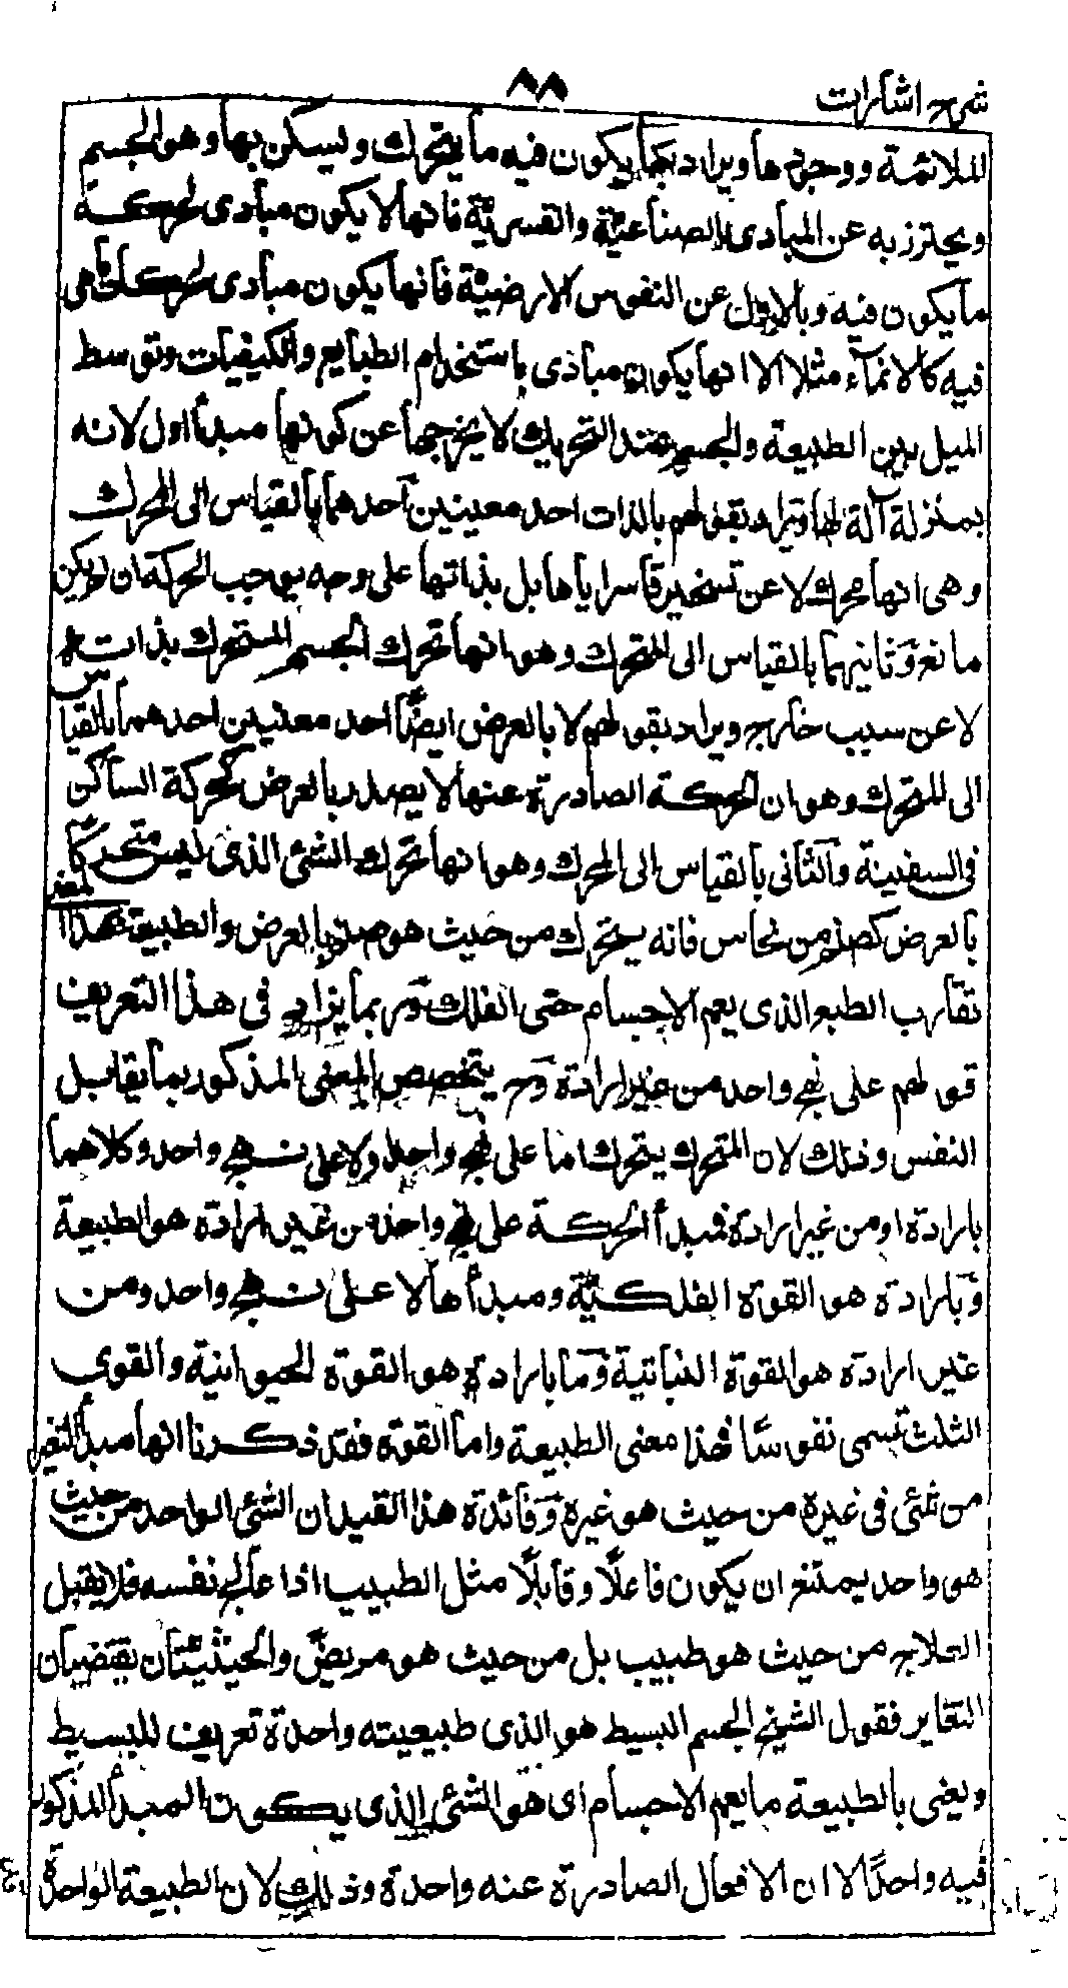 شرح اشارات
٨٨
للملائمة ووجودها ويراد بما يكون فيه ما يتحرك ويسكن بها وهو الجسم
ويحترز به عن المبادى الصناعيّة والقسريّة فانها لا يكون مبادى لحركة
ما يكون فيه وبالاول عن النفوس الارضيّة فانها يكون مبادى لحركات ما هى
فيه كالانماء مثلا الا انها يكون مبادى باستخدام الطبايع والكيفيات وتوسط
الميل بين الطبيعة والجسم عند التحريك لا يخرجها عن كونها مبدأ اول لانه
بمنزلة آلة لها ويراد بقولهم بالذات احد معنيين احدهما بالقياس الى المحرك
وهى انها تحرك لا عن تسخير قاسر اياها بل بذاتها على وجه يوجب الحركة ان لم يكن
مانع وثانيهما بالقياس الى المتحرك وهو انها تحرك الجسم المتحرك بذاته
لا عن سبب خارج ويراد بقولهم لا بالعرض ايضًا احد معنيين احدهما بالقياس
الى المتحرك وهو ان الحركة الصادرة عنها لا يصدر بالعرض كحركة الساكن
فى السفينة والثانى بالقياس الى المحرك وهو انها تحرك الشئ الذى ليس متحركًا
بالعرض كصنم من نحاس فانه يتحرك من حيث هو صنم بالعرض والطبيعة بهذا المعنى
تقارب الطبع الذى يعم الاجسام حتى الفلك وربما يزاد فى هذا التعريف
قولهم على نهج واحد من غير ارادة وح يتخصص المعنى المذكور بما يقابل
النفس وذلك لان المتحرك يتحرك اما على نهج واحد ولا على نهج واحد وكلاهما
بارادة او من غير ارادة فمبدأ الحركة على نهج واحد من غير ارادة هو الطبيعة
وبارادة هو القوة الفلكيّة ومبدأها لا على نهج واحد ومن
غير ارادة هو القوة النباتية وما بارادة هو القوة الحيوانية والقوى
الثلث تسمى نفوسًا فهذا معنى الطبيعة واما القوة فقد ذكرنا انها مبدأ التغير
من شئ فى غيره من حيث هو غيره وفائدة هذا القيد ان الشئ الواحد من حيث
هو واحد يمتنع ان يكون فاعلًا وقابلًا مثل الطبيب اذا عالج نفسه فلا يقبل
العلاج من حيث هو طبيب بل من حيث هو مريض والحيثيّتان يقتضيان
التغاير فقول الشيخ الجسم البسيط هو الذى طبيعيته واحدة تعريف للبسيط
ويعنى بالطبيعة ما يعم الاجسام اى هو الشئ الذى يكون المبدأ المذكور
فيه واحدًا لا ان الافعال الصادرة عنه واحدة وذلك لان الطبيعة الواحدة